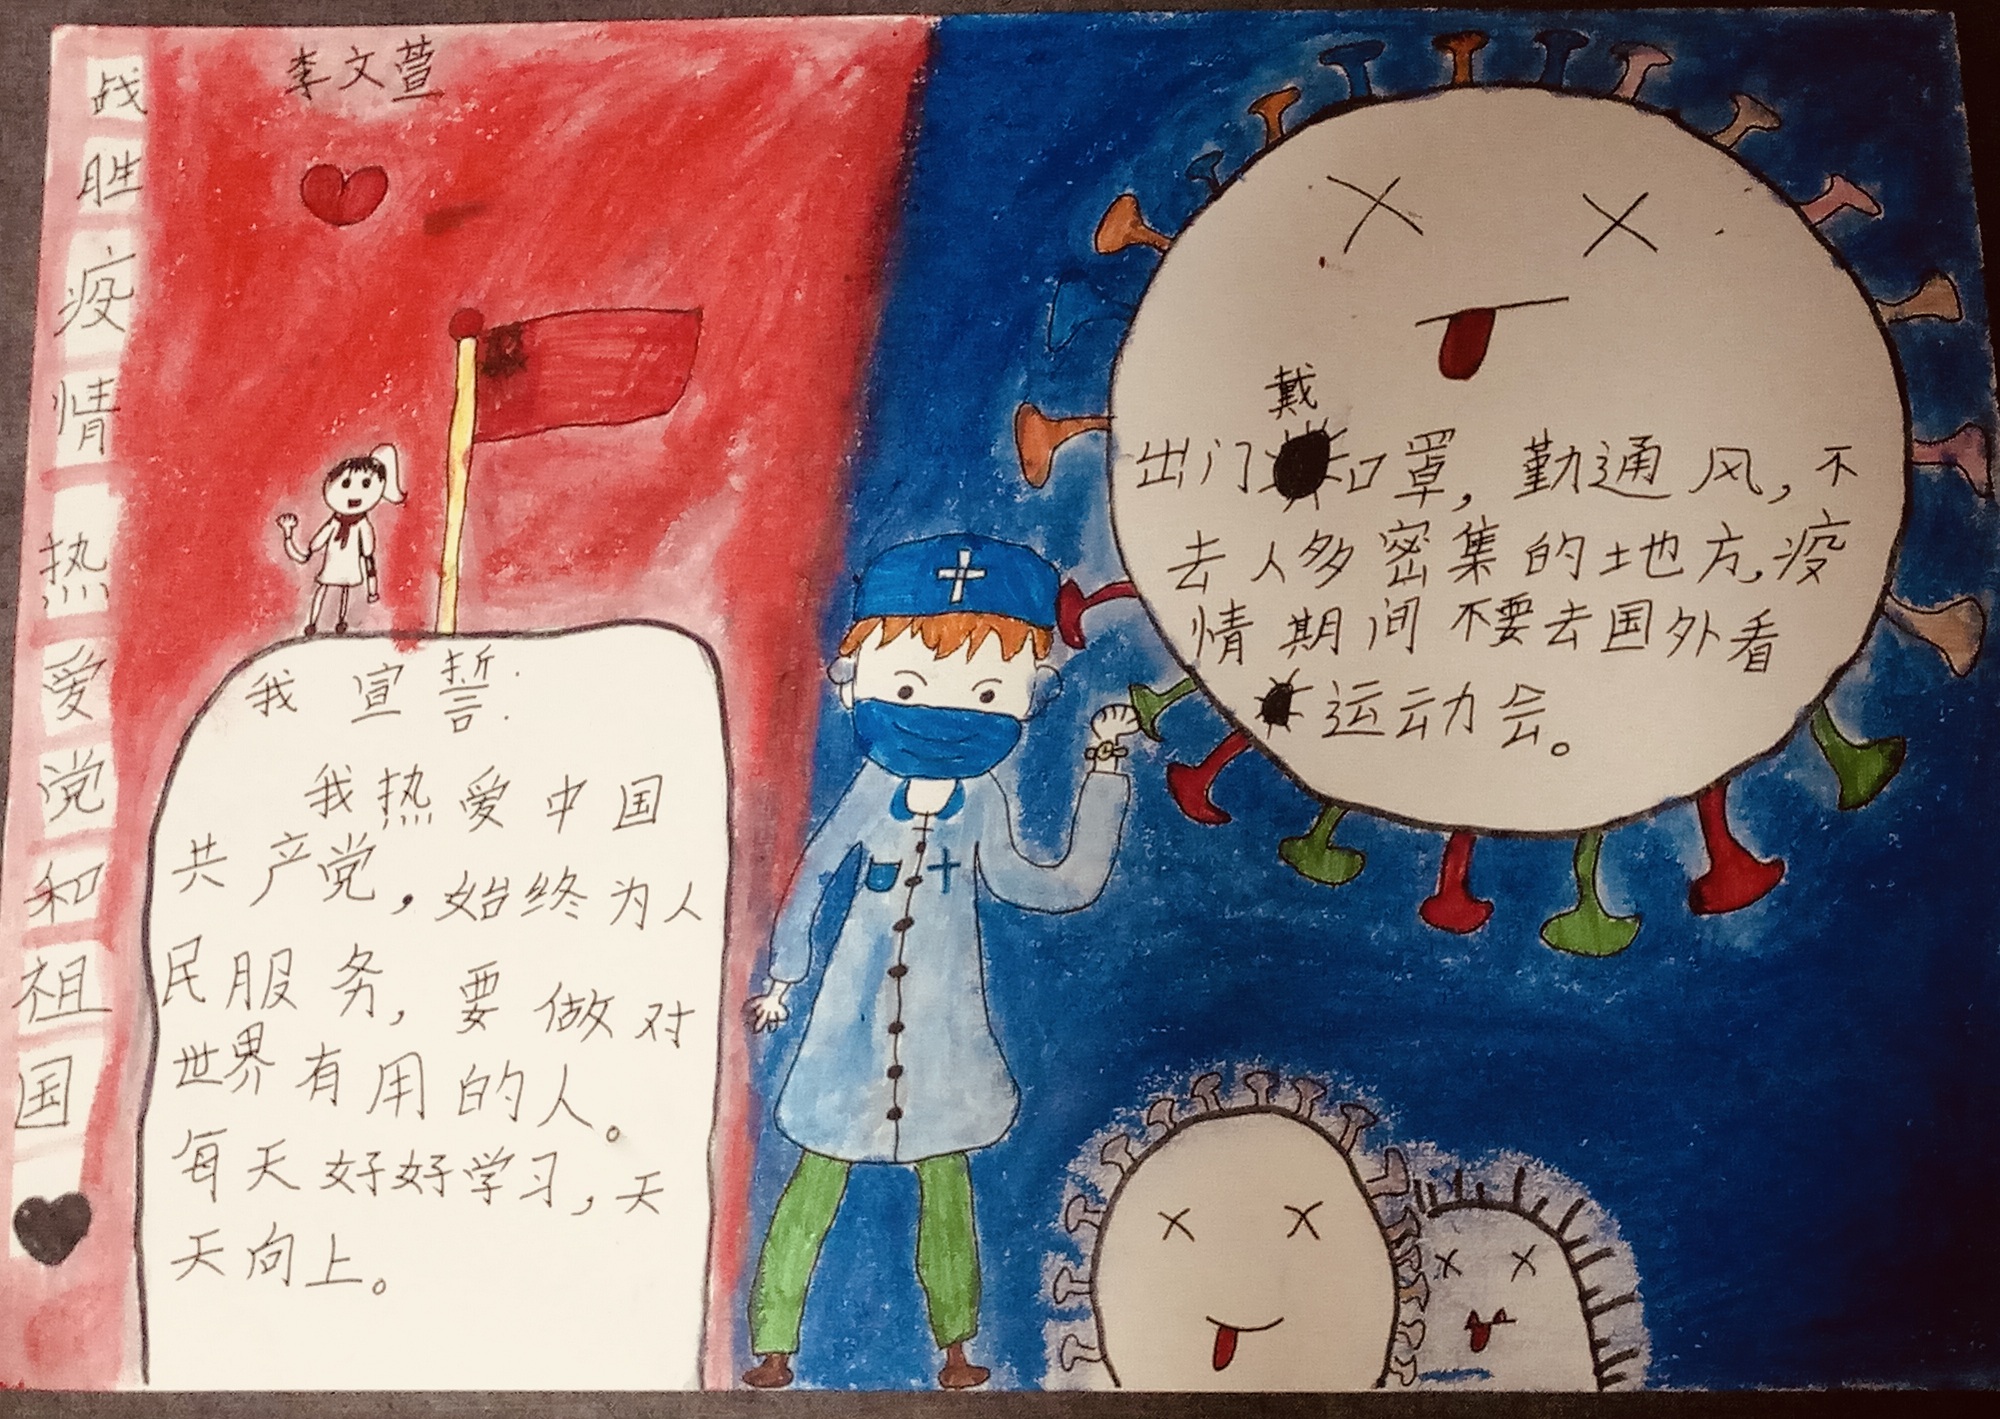 战胜疫情热爱党和祖国
李文萱
我宣誓:
我热爱中国
共产党,始终为人
民服务,要做对
世界有用的人。
每天好好学习,天
天向上。
戴
出门口罩,勤通风,不
去人多密集的地方,疫
情期间不要去国外看
运动会。